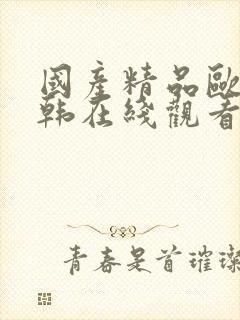 國產精品歐
韩在綫觀看
青春是首璀璨